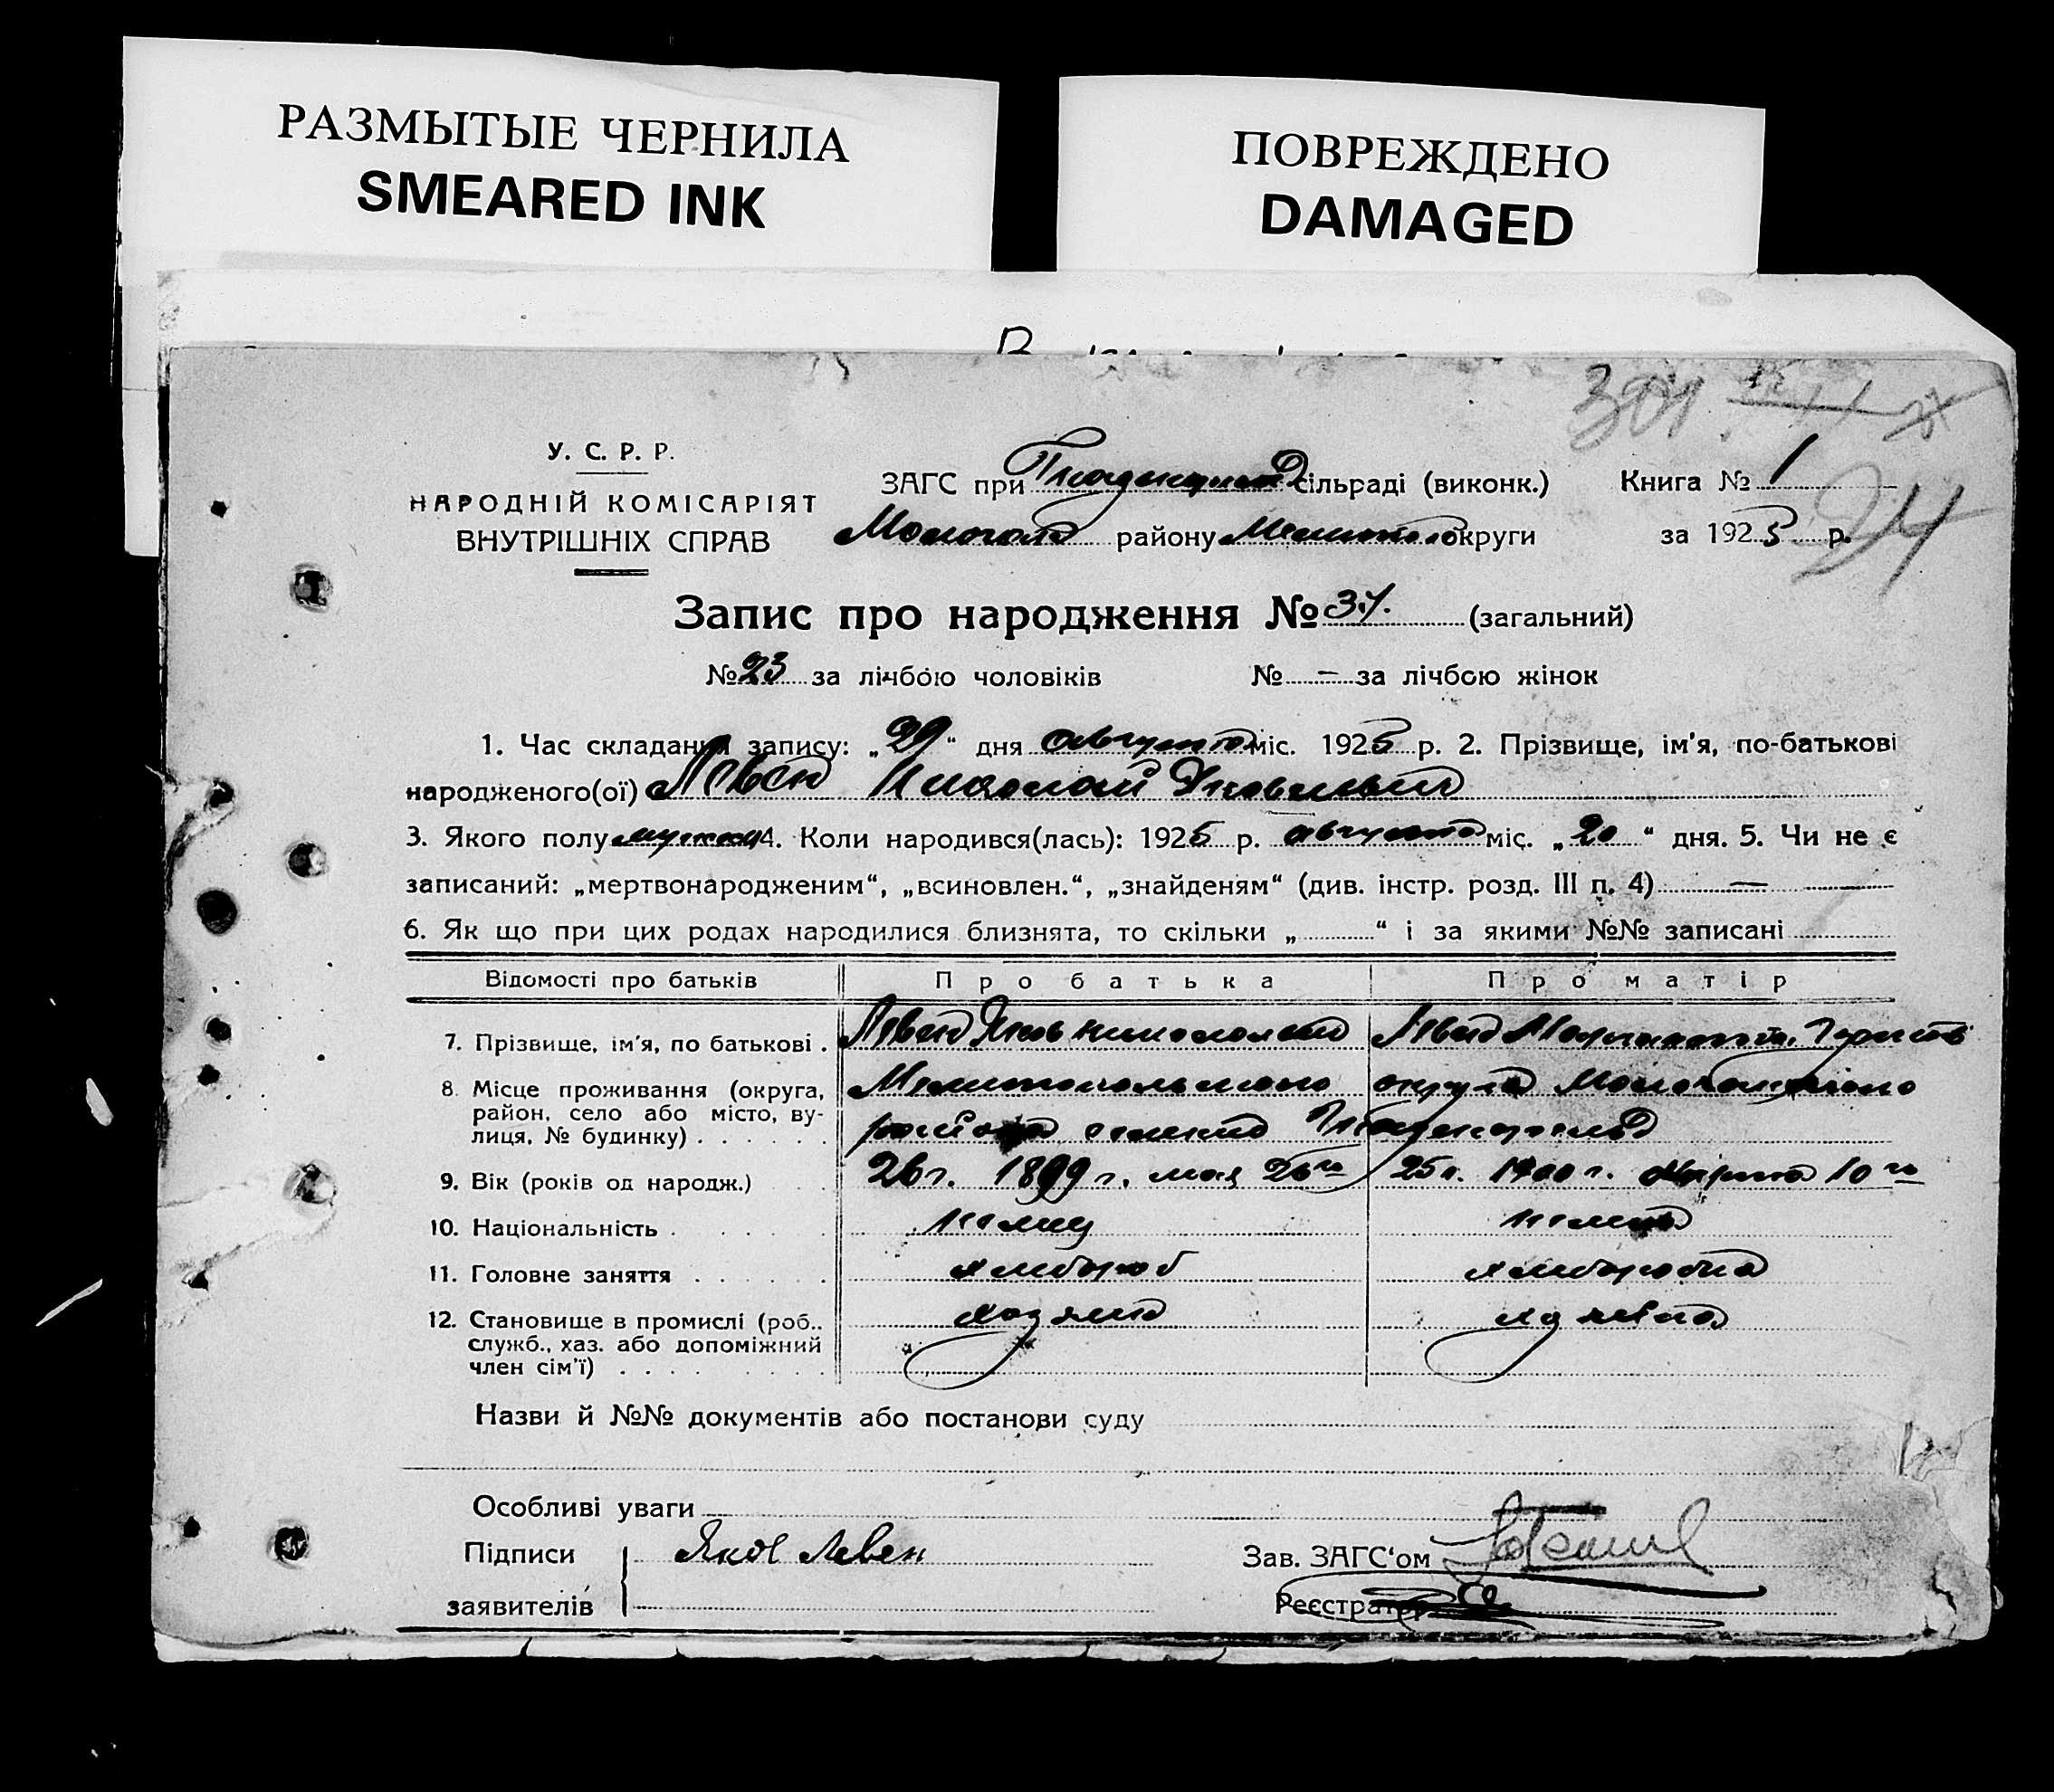 РАЗМЫТЫЕ ЧЕРНИЛА
SMEARED INK
ПОВРЕЖДЕНО
DAMAGED
301
24
У. С. Р. Р.
НАРОДНІЙ КОМІСАРІЯТ
ВНУТРІШНІХ СПРАВ
ЗАГС при сільраді (виконк.)
Молочан району Мелитопол округи
Книга № 1
за 1925 р.
Запис про народження № 37. (загальний)
№ 23 за лічбою чоловіків № — за лічбою жінок
1. Час складання запису: „29“ дня августа міс. 1925 р. 2. Прізвище, ім'я, по-батькові
народженого(ої) Левен Николай Яковлевич
3. Якого полу мужск 4. Коли народився(лась): 1925 р. августа міс. „20“ дня. 5. Чи не є
записаний: „мертвонародженим“, „всиновлен.“, „знайденям“ (див. інстр. розд. III п. 4) —
6. Як що при цих родах народилися близнята, то скільки „ “ і за якими №№ записані
Відомості про батьків Про батька Про матір
7. Прізвище, ім'я, по батькові . Левен Яков Николаевич Левен
8. Місце проживання (округа,
район, село або місто, ву-
лиця, № будинку) . . . . . .
Мелитопольского округа Молочанского
района
9. Вік (років од народж.) 26 г. 1899 г. мая 26го 25 л. 1900 г. Марта 10го
10. Національність . немец немка
11. Головне заняття . . . . . . хлебороб хлеборобка
12. Становище в промислі (роб..
служб., хаз. або допоміжний
член сім'ї) . . . . . . . .
хозяин хозяйка
Назви й №№ документів або постанови суду
Особливі уваги
Підписи
заявителів
Яков Левен
Зав. ЗАГС'ом
Реєстратор